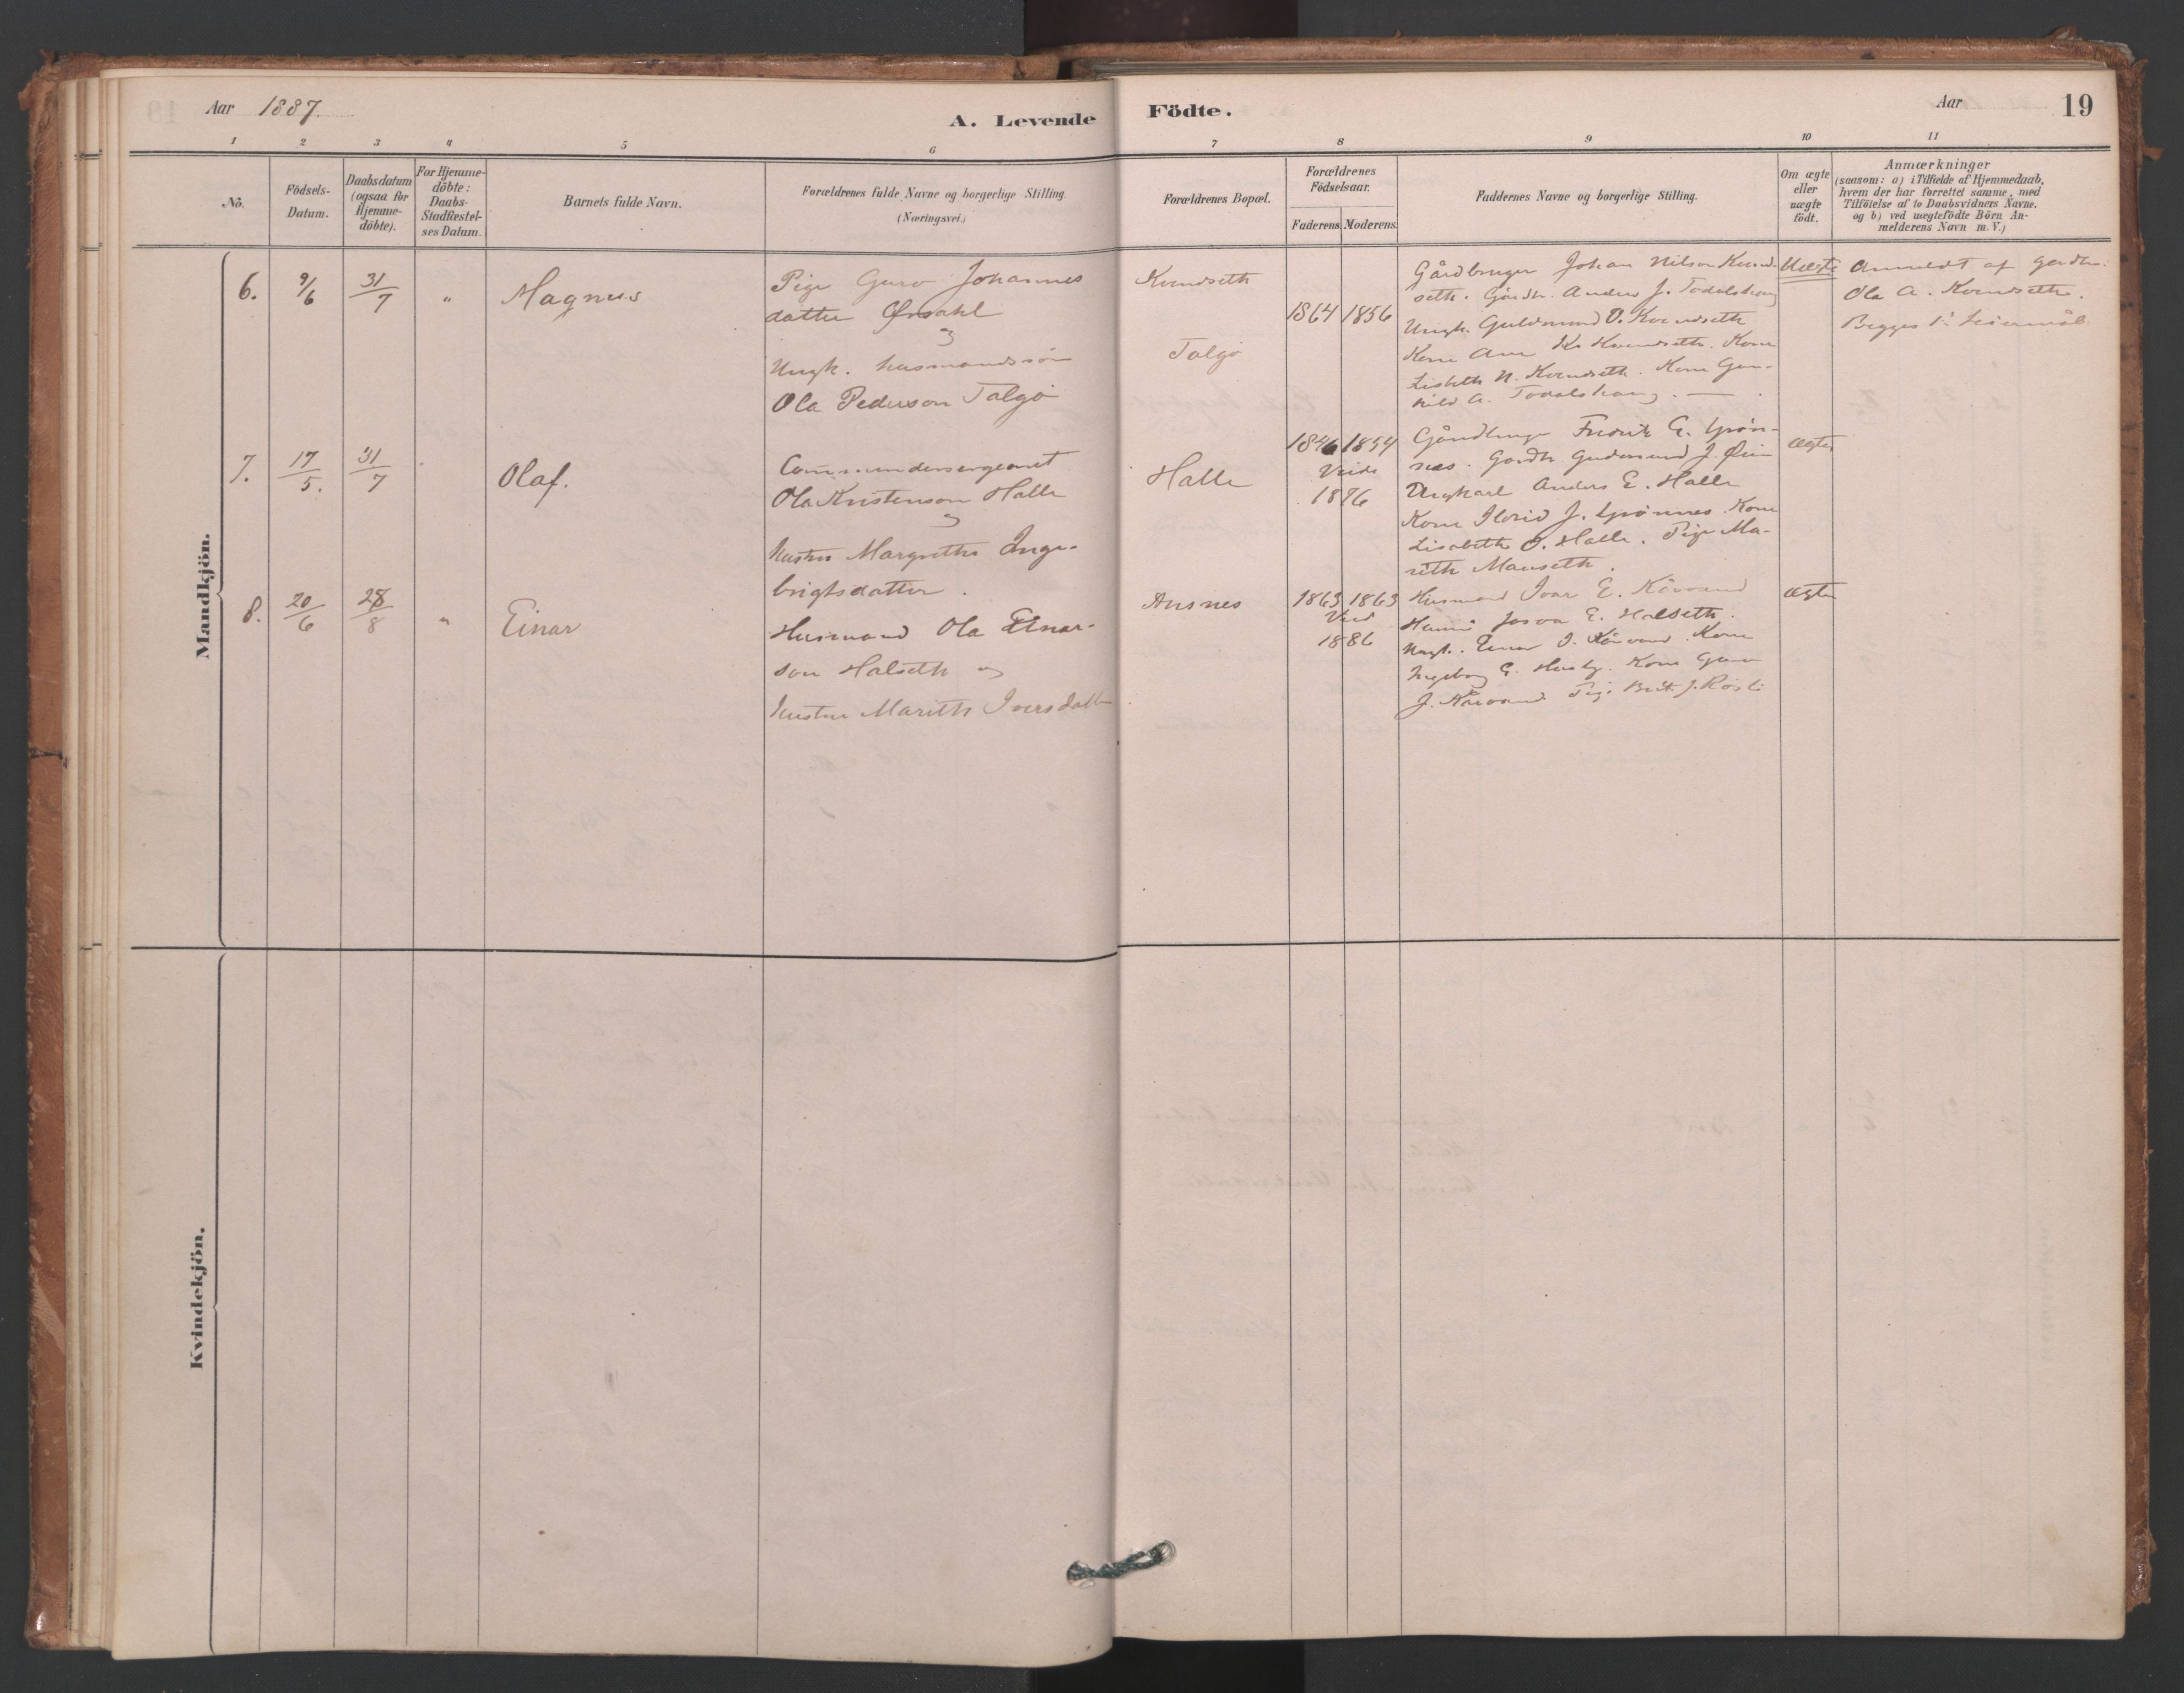 Aar 1887.
A. Levende Födte.
Aar
19
1 2 3 4 5 6 7 8 9 10 11
No.
Födsels-
Datum.
Daabsdatum
(ogsaa for
Hjemme-
döbte).
For Hjemme-
döbte:
Daabs-
Stadfæstel-
ses Datum.
Barnets fulde Navn.
Forældrenes fulde Navne og borgerlige Stilling.
(Næringsvei.)
Forældrenes Bopæl.
Forældrenes
Födselsaar.
Faderens Moderens
Faddernes Navne og borgerlige Stilling.
Om ægte
eller
uægte
födt.
Anmærkninger
(saasom: a) i Tilfælde af Hjemmedaab,
hvem der har forrettet samme, med
Tilföielse af to Daabsvidners Navne.
og b) ved uægtefödte Börn An-
melderens Navn m.V.)
Mandkjön.
6.
9/6
31/7
"
Magnus
Pige Guro Johannes
datter
og
Ungk. husmandssön
Ola Pederson Talgö
Kvendseth
Talgö
1864 1856
Gårdbruger Johan Nilson Kvend-
seth. Gårdbr. Anders J. Todalshaug
Ungk. Guldmund O. Kvendseth
Kone Ane Kvendseth. Kone
Lisbeth N. Kvendseth. Kone Gun-
hild A. Todalshaug.
Uægte
Anmeldt af Gårdbr.
Ola A. Kvendseth.
Begges 1. Leiermål.
7.
17/5.
31/7
"
Olaf.
Commandersergeant
Ola Kristenson Halle
og
Hustru Margrethe Inge-
brigtsdatter.
Halle
1846 1854
Viede
1876
Gårdbruger Fredrik G. Grön-
nes. Gårdbr Gudmund J.
Ungkarl Anders E. Halle
Kone J. Grönnes. Kone
Lisabeth O. Halle. Pige Ma-
rith Mauseth.
ægte
8.
20/6
28/8
"
Einar
Husmand Ola Einar-
son Halseth og
Hustru Marith Iversdatter
Ansnes
1863 1863
Vied
1886
Husmand Ivar E. Kårvand
E. Halseth.
Ungk. Einar I. Kårvand. Kone
Ingeborg E. Husby. Kone Guro
J. Kårvand Pige Brit. J. Rösli
ægte
Kvindekjön.